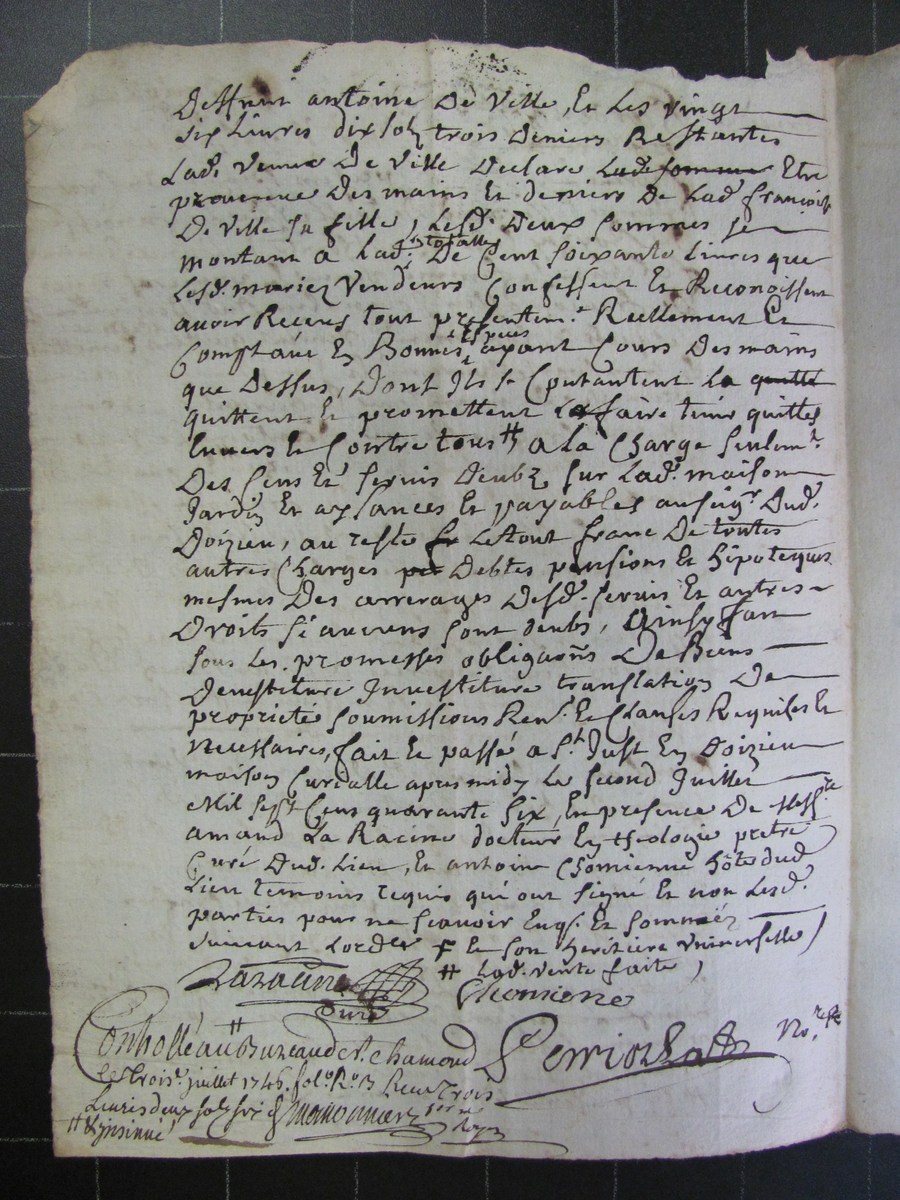 Deffunt antoine De Ville, Et Les vingt
six Livres dix solz trois Deniers Restantes
Lad. veuve De Ville Declare Lad. somme Etre
provenue Des mains Et deniers De Lad. françoise
De Ville sa fille, Lesd. Deux sommes se
montant a Lad. totalle De Cent soixante Livres que
Lesd. mariez Vendeurs Confessent Et Reconoissent
avoir Receus tout presentem.t Reellement Et
Comptant En Bonnes espèces ayant Cours Des mains
que Dessus, Dont Ils se Contantent La quitte
quittent Et promettent La faire tenir quittes
Envers Et Contre tous # a La Charge seulem.t
Des Cens Et servis Deubz sur Lad. maison
Jardin Et aysances Et payables au seig.r Dud.
Doizieu, au reste Le tout franc De toutes
autres Charges Debtes pensions Et hipoteques
mesmes Des arrerages Desd. servis Et autres
Droits si aucuns sont deubs, Ainsy fait
sous Les promesses obligaons De Biens
Devestiture Investiture translation De
proprieté soumissions Ren.s Et Clauses Requises Et
necessaires, fait Et passé a S.t Just En Doizieu
maison Curialle apres midy Le second Juillet
Mil sept Cens quarante six, En presence De Mess.re
amand La Racine docteur En theologie pretre
Curé Dud. Lieu, Et antoine Chomienne hôte dud.
Lieu temoins requis qui ont signé Et non Lesd.
parties pour ne sçavoir Enq.s Et sommées
suivant Lordce F Et son heritiere universelle
# Lad. vente faite,
Laracine
Curé
Chomienne
Conthollé au Bureau de S.t Chamond
Perrichon
No.re
le trois.e juillet 1746. fol.o R.o Receu trois
Livres deux sols six d
# & insinué